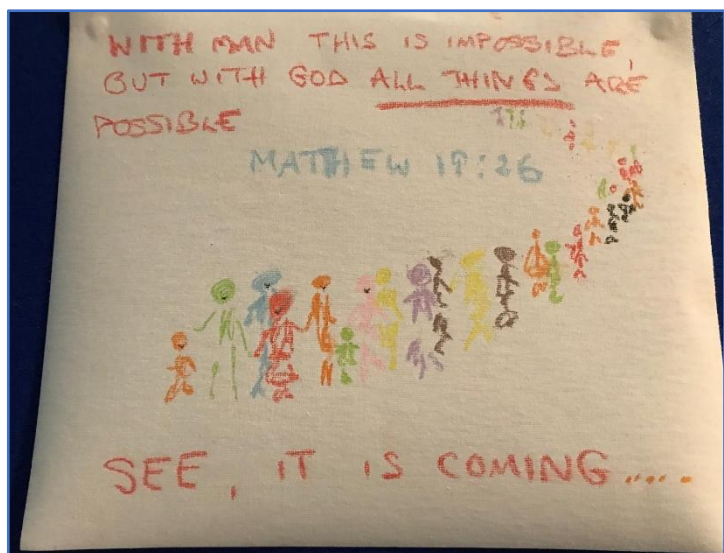 WITH MAN THIS IS IMPOSSIBLE,
BUT WITH GOD ALL THINGS ARE
POSSIBLE
MATHEW 19:26
SEE, IT IS COMING.....